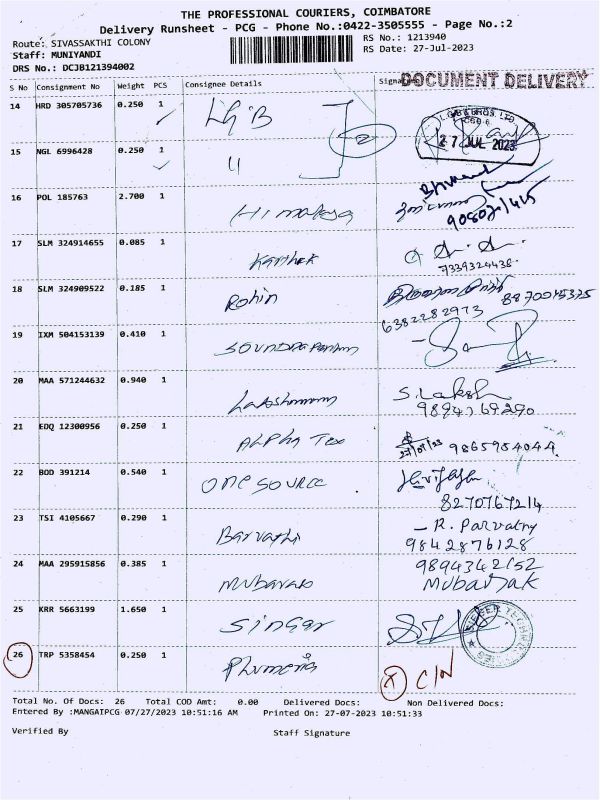 THE PROFESSIONAL COURIERS, COIMBATORE
Delivery Runsheet - PCG - Phone No.:0422-3505555 - Page No.:2
Route: SIVASSAKTHI COLONY
RS No.: 1213940
Staff: MUNIYANDI
RS Date: 27-Jul-2023
DRS No.: DCJB121394002
S No Consignment No Weight PCS Consignee Details Signature
DOCUMENT DELIVERY
14 HRD 305705736 0.250 1 LGB
27 JUL 2023
15 NGL 6996428 0.250 1 "
16 POL 185763 2.700 1 Himalaya
17 SLM 324914655 0.085 1 Karthek
7339324438
18 SLM 324909522 0.185 1 Rohin
6382282973
19 IXM 504153139 0.410 1
20 MAA 571244632 0.940 1 Lakshmanan S. Laksh
9894769290
21 EDQ 12300956 0.250 1 Alpha Tex 27/07/23 9865984044
22 BOD 391214 0.540 1 One Source
8270767214
23 TSI 4105667 0.290 1 Barvathi - R. Parvathy
9842876128
24 MAA 295915856 0.385 1 Mubarak 9894342152
Mubarak
25 KRR 5663199 1.650 1 Singar
26 TRP 5358454 0.250 1 Phumeria X C/N
Total No. Of Docs: 26 Total COD Amt: 0.00 Delivered Docs: Non Delivered Docs:
Entered By :MANGAIPCG 07/27/2023 10:51:16 AM Printed On: 27-07-2023 10:51:33
Verified By Staff Signature